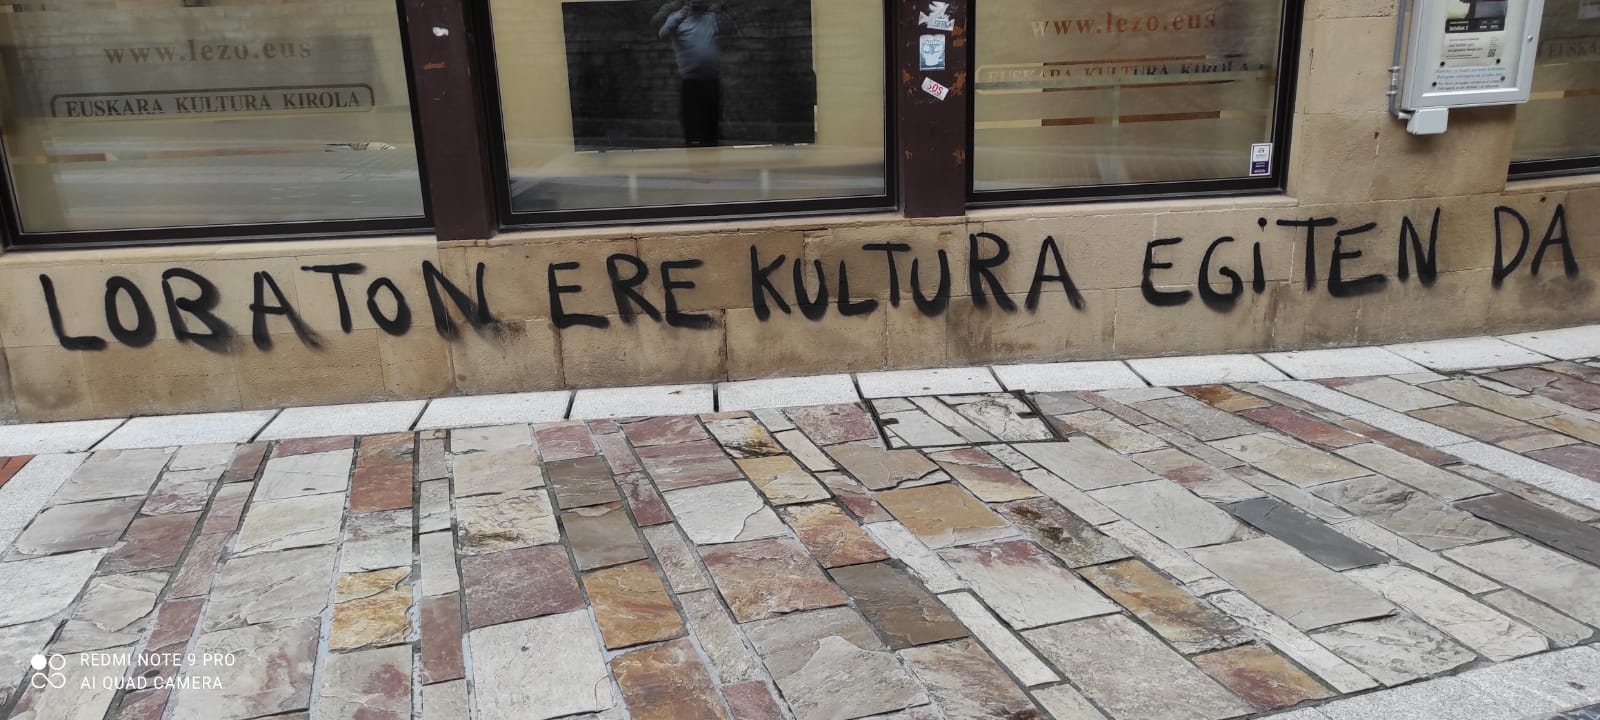 www.lezo.eus
EUSKARA KULTURA KIROLA
www.lezo.eus
EUSKARA KULTURA KIROLA
SOS
LOBATON ERE KULTURA EGiTEN DA
REDMI NOTE 9 PRO
AI QUAD CAMERA